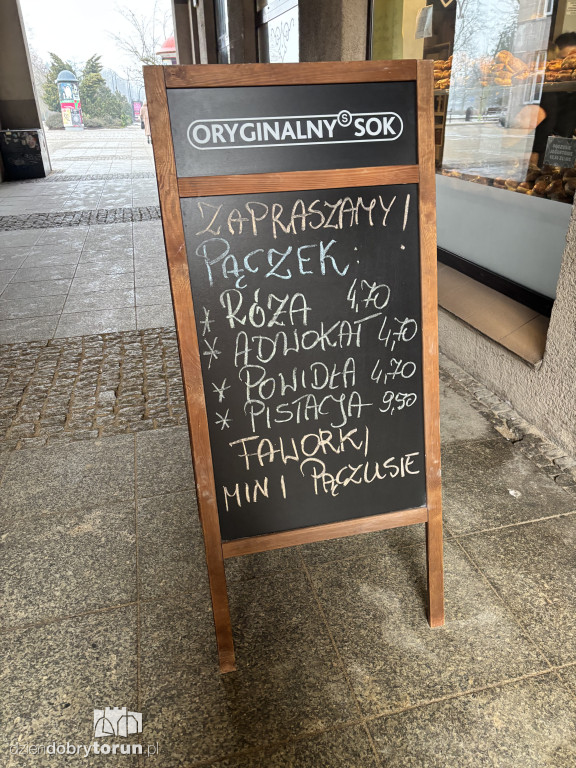 ORYGINALNY S SOK
ZAPRASZAMY!
PĄCZEK:
* RÓŻA 4,70
* ADWOKAT 4,70
* POWIDŁA 4,70
* PISTACJA 9,50
FAWORKI
MINI PĄCZUSIE
dzieńdobrytorun.pl